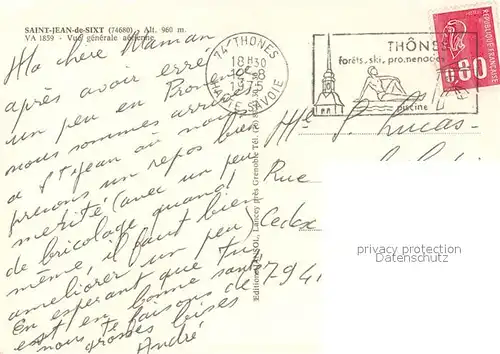 SAINT-JEAN-de-SIXT (74680) Alt. 960 m.
VA 1859 - Vue générale aérienne
Ma chère Maman
après avoir erré
un peu en Provence
nous sommes arrivés
à St Jean où nous
prenons un repos bien
mérité (avec un peu
de bricolage quand
même, il faut bien
améliorer un peu)
En espérant que tu
est en bonne santé
nous te faisons de
grosses bises
André
74 THONES
18 H30
1975
HAUTE-SAVOIE
THÔNES
forêts, ski, promenades
piscine
REPUBLIQUE FRANÇAISE
0,80
Lucas
Rue
Cedex
794
Lancey près Grenoble
privacy protection
datenschutz